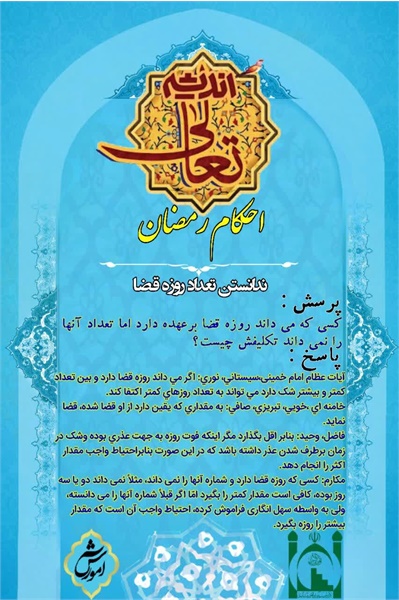 اندیشه
تعالی
احکام رمضان
ندانستن تعداد روزه قضا
پرسش :
کسی که می داند روزه قضا برعهده دارد اما تعداد آنها
را نمی داند تکلیفش چیست؟
پاسخ :
آیات عظام امام خمینی،سیستانی، نوری: اگر می داند روزه قضا دارد و بین تعداد
کمتر و بیشتر شک دارد می تواند به تعداد روزهای کمتر اکتفا کند.
خامنه ای ،خویی، تبریزی، صافی: به مقداری که یقین دارد از او قضا شده، قضا
نماید.
فاضل، وحید: بنابر اقل بگذارد مگر اینکه فوت روزه به جهت عذری بوده وشک در
زمان برطرف شدن عذر داشته باشد که در این صورت بنابراحتیاط واجب مقدار
اکثر را انجام دهد.
مکارم: کسی که روزه قضا دارد و شماره آنها را نمی داند، مثلاً نمی داند دو یا سه
روز بوده، کافی است مقدار کمتر را بگیرد امّا اگر قبلاً شماره آنها را می دانسته،
ولی به واسطه سهل انگاری فراموش کرده، احتیاط واجب آن است که مقدار
بیشتر را روزه بگیرد.